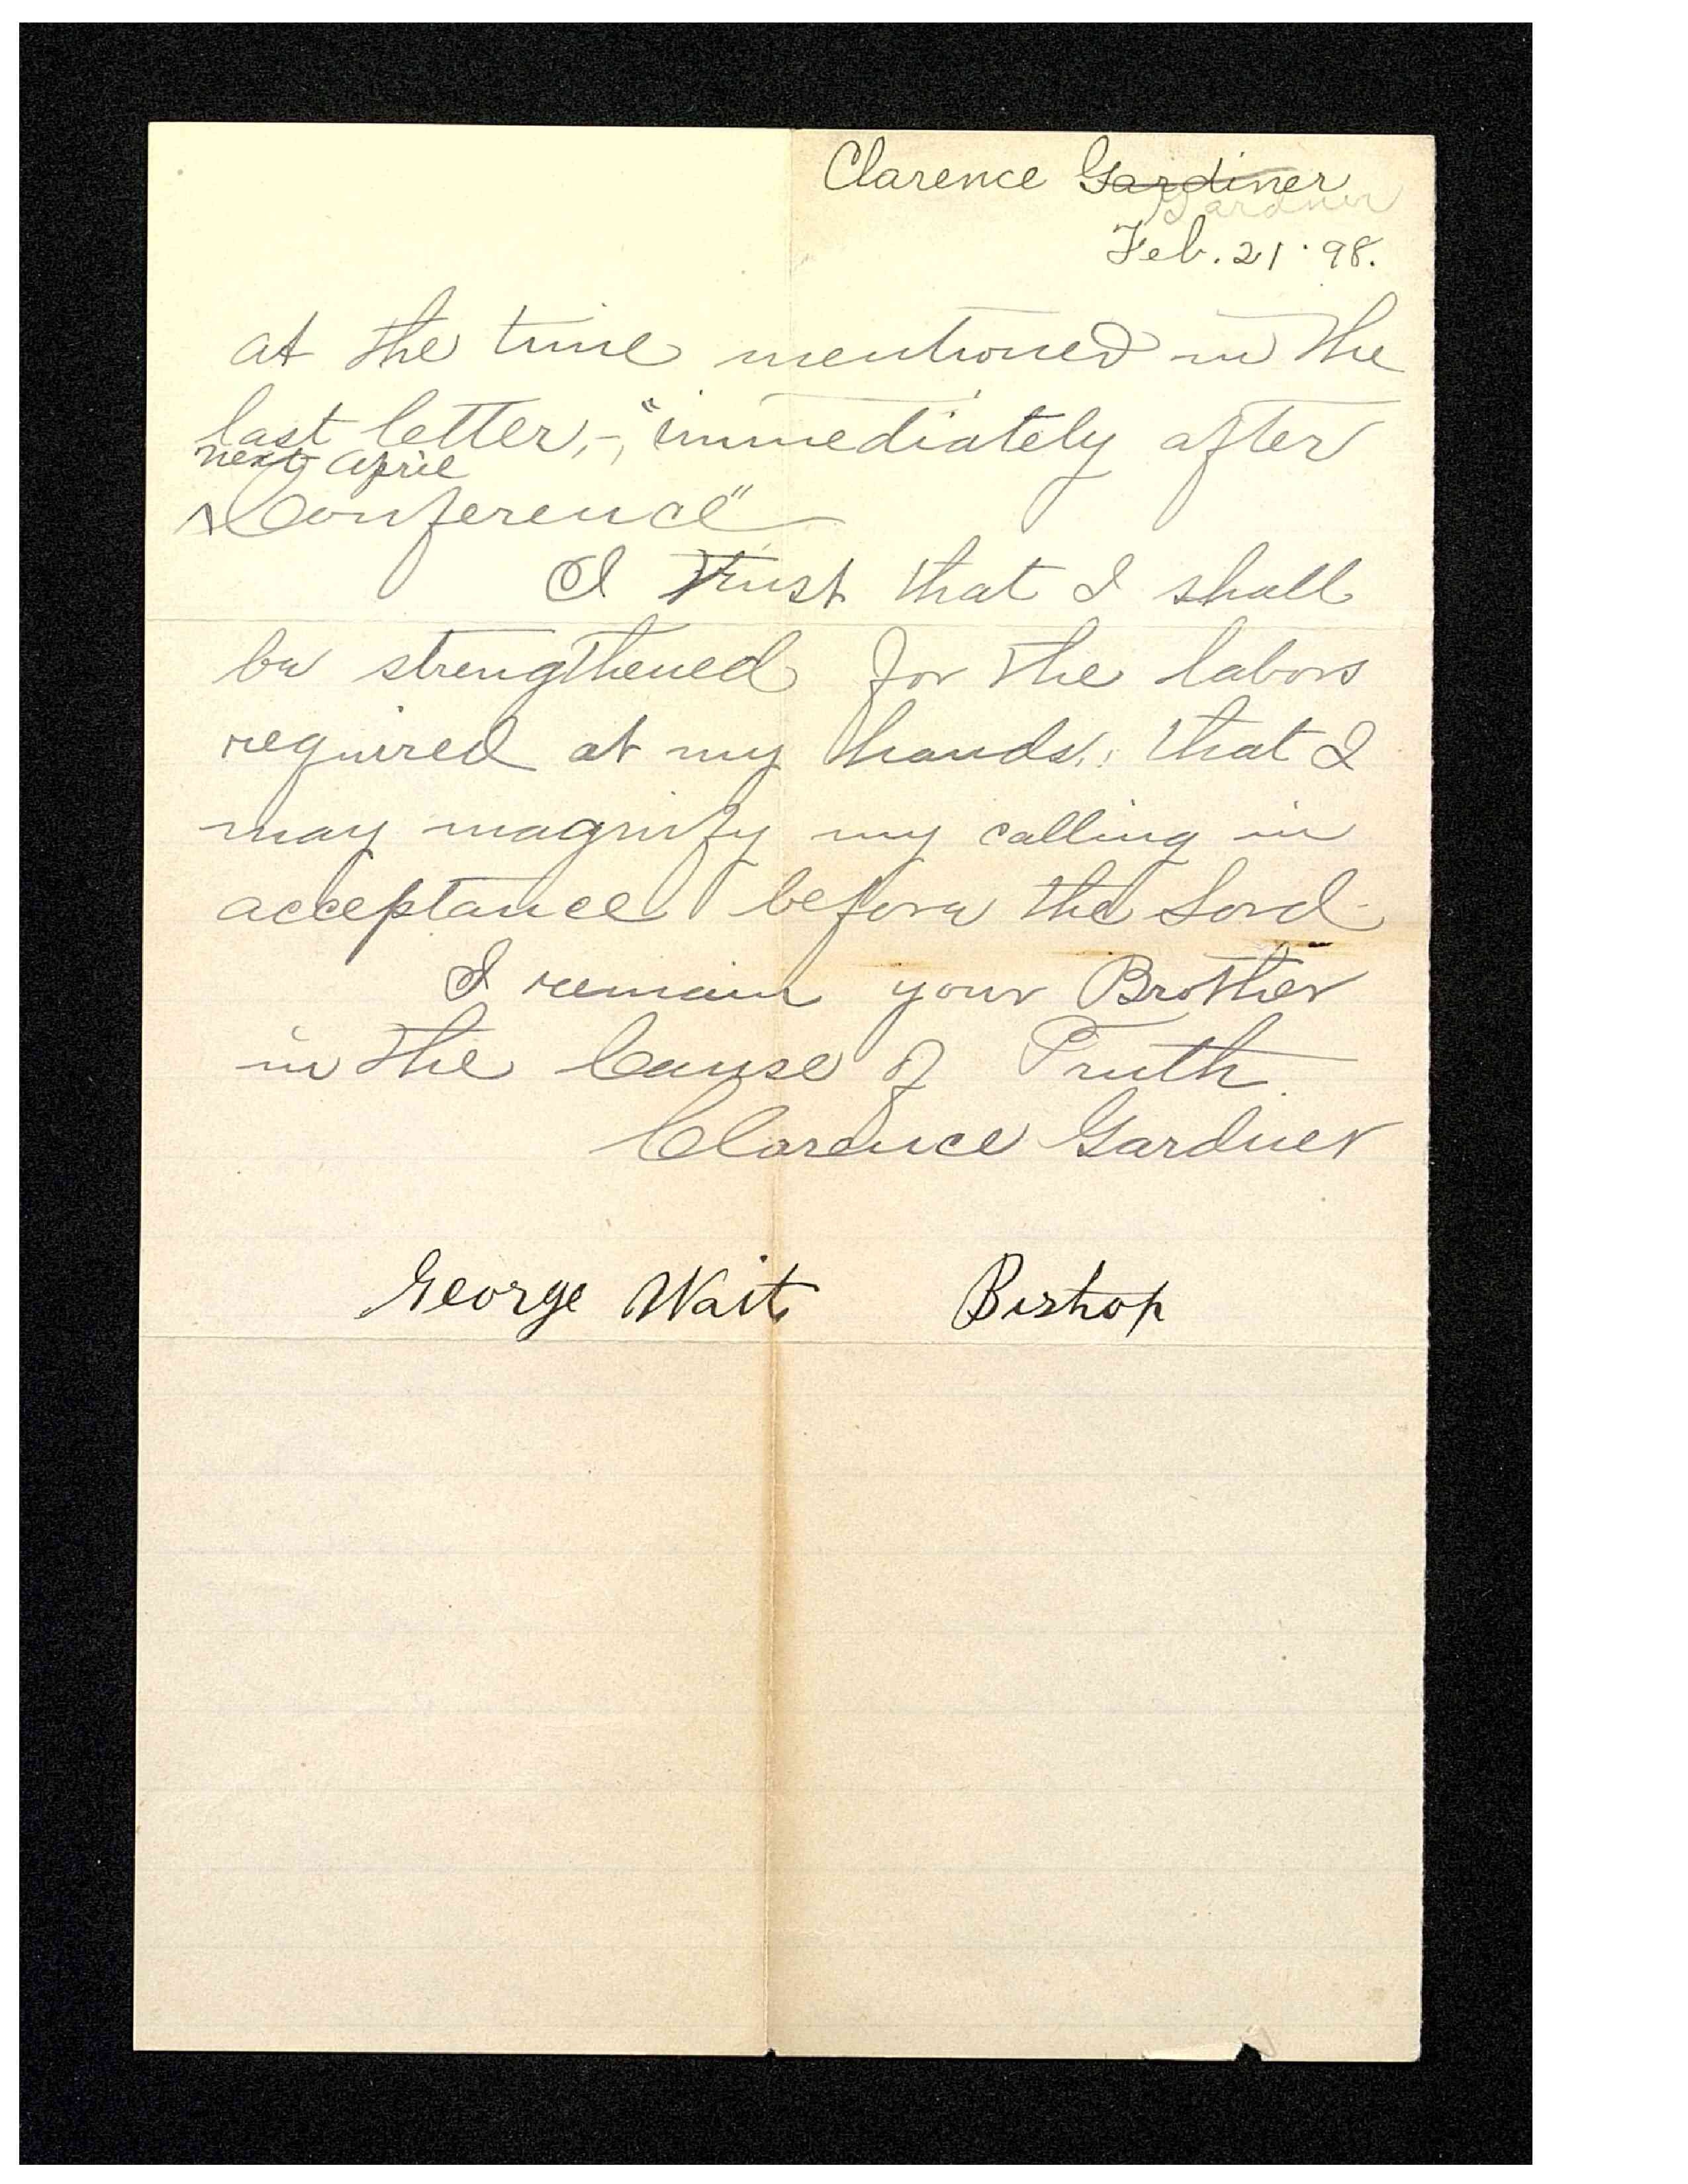 Clarence Gardiner
Gardner
Feb. 21 '98.
at the time mentioned in the
last letter,-, "immediately after
next April
^ Conference"
I trust that I shall
be strengthened for the labors
required at my hands, that I
may magnify my calling in
acceptance before the Lord.
I remain your Brother
in the Cause of Truth.
Clarence Gardner
George Wait Bishop